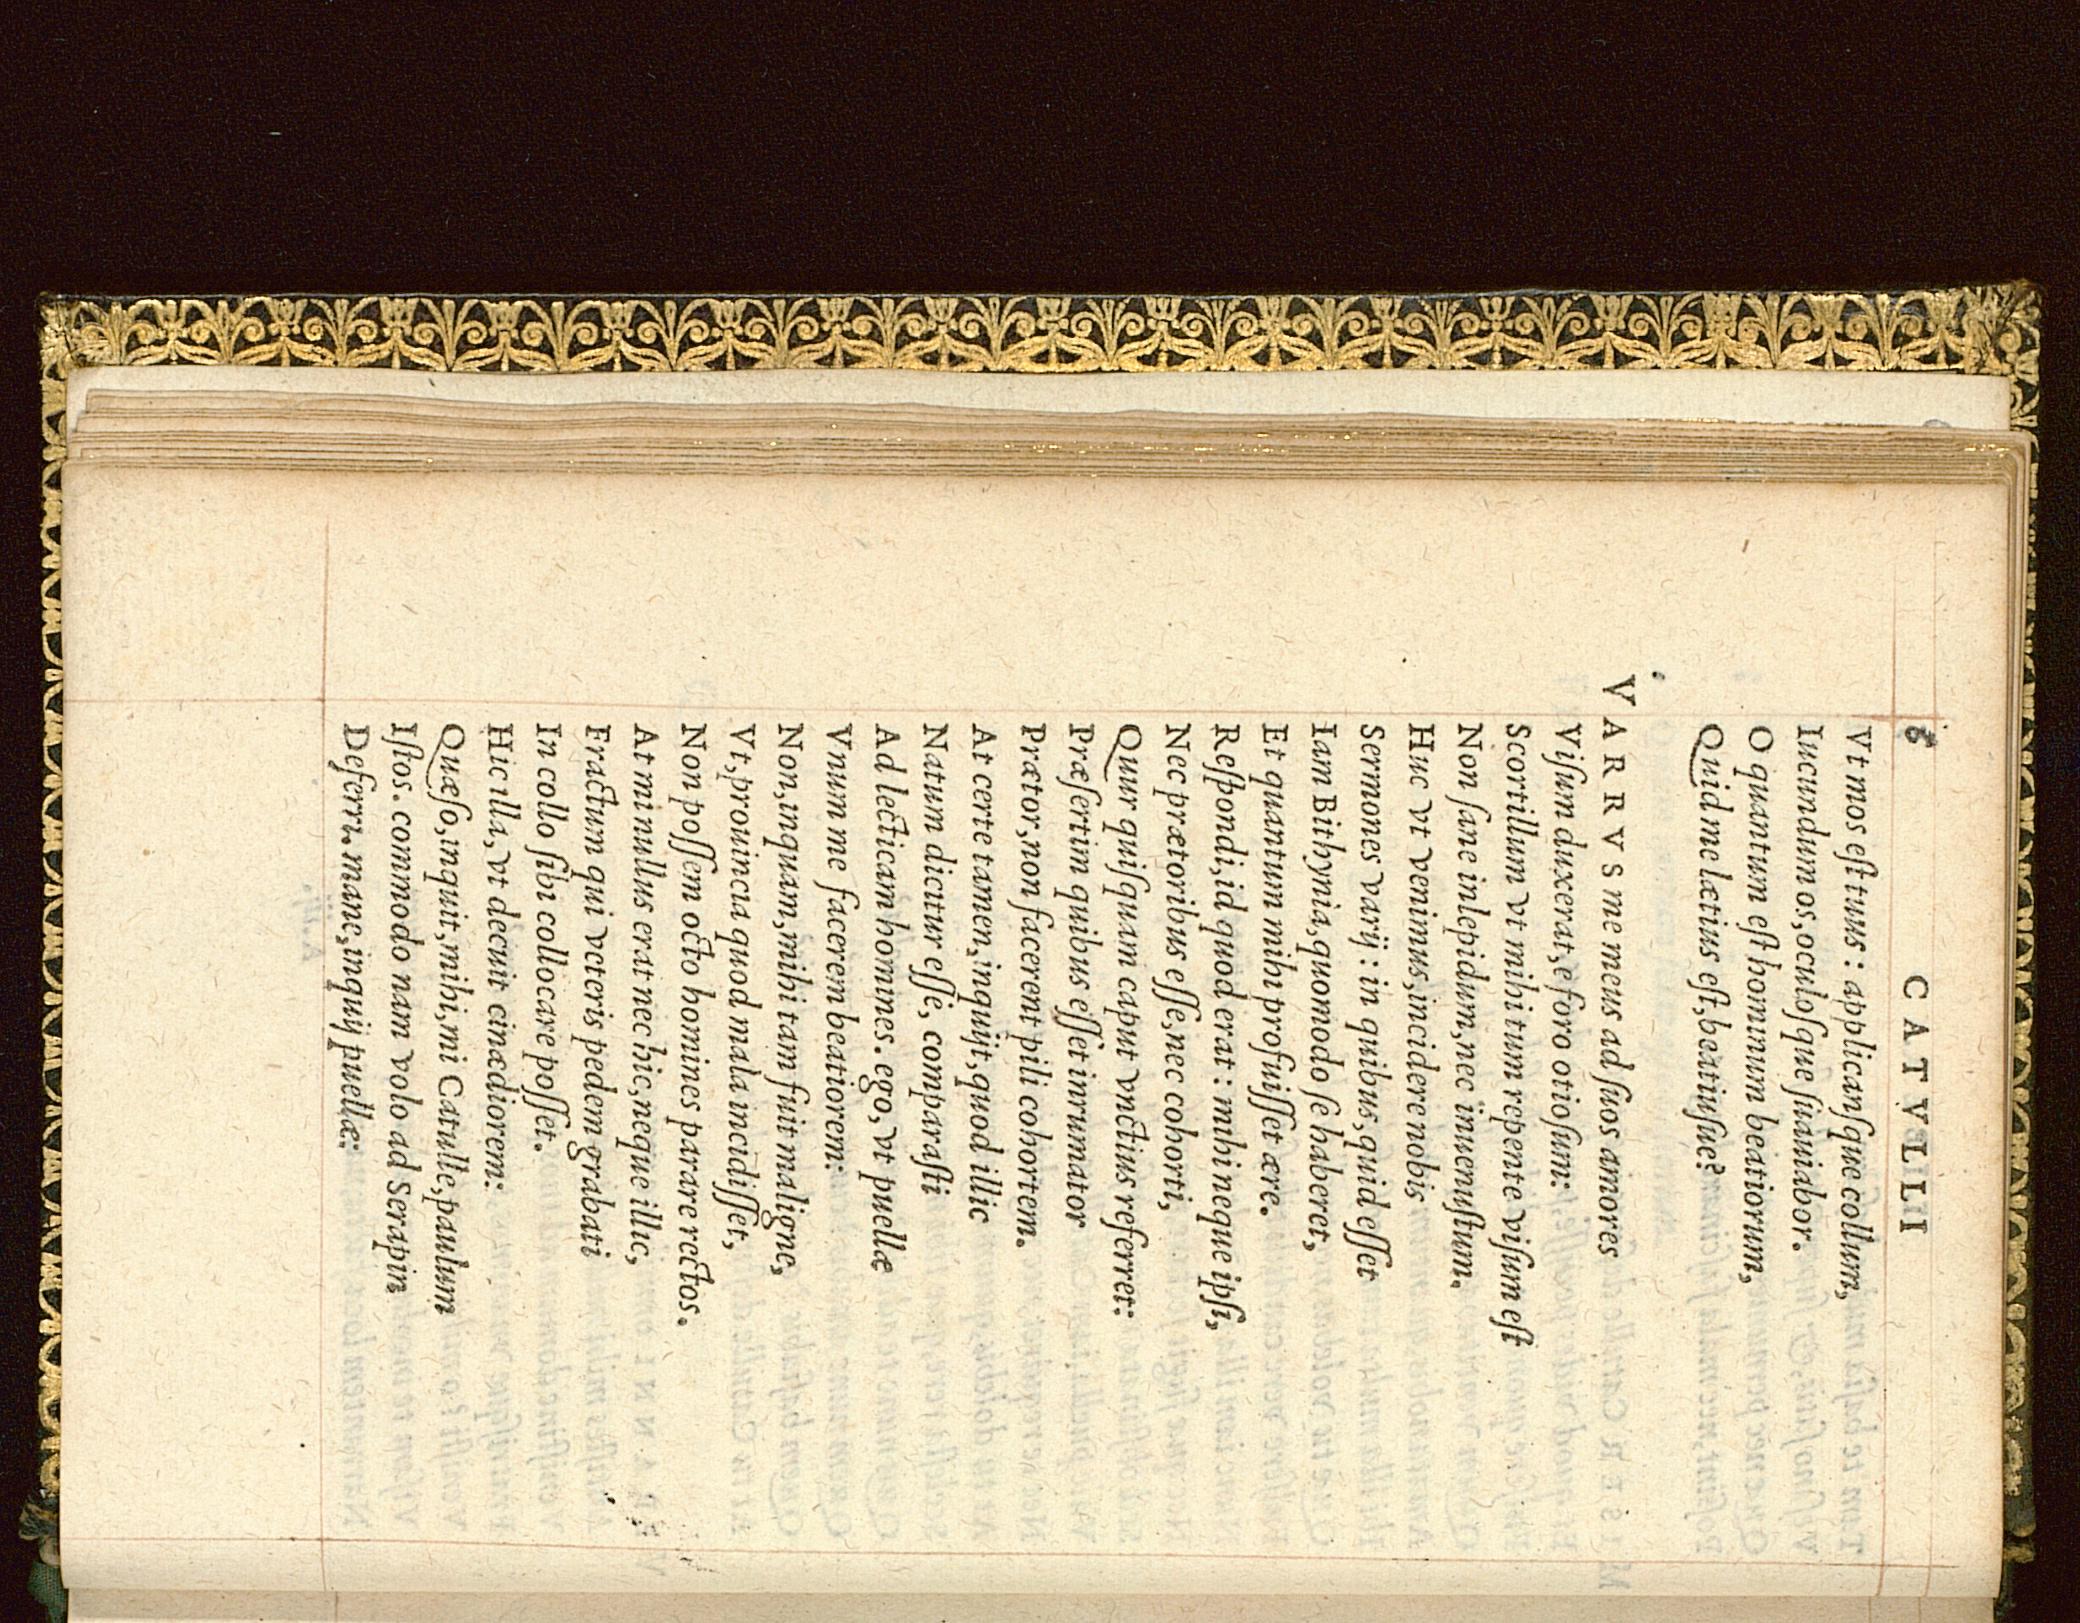 8 CATVLLI
Vt mos eſt tuus: applicanſque collum,
Iucundum os, oculoſque ſuauiabor.
O quantum eſt hominum beatiorum,
Quid me lætius eſt, beatiuſue?
VARRVS me meus ad ſuos amores
Viſum duxerat, e foro otioſum:
Scortillum vt mihi tum repente viſum eſt
Non ſane inlepidum, nec inuenuſtum.
Huc vt venimus, incidere nobis
Sermones varij: in quibus, quid eſſet
Iam Bithynia, quomodo ſe haberet,
Et quantum mihi profuiſſet ære.
Reſpondi, id quod erat: mihi neque ipſi,
Nec prætoribus eſſe, nec cohorti,
Quur quiſquam caput vnctius referret:
Præſertim quibus eſſet inrumator
Prætor, non facerent pili cohortem.
At certe tamen, inquijt, quod illic
Natum dicitur eſſe, comparaſti
Ad lecticam homines. ego, vt puellæ
Vnum me facerem beatiorem:
Non, inquam, mihi tam fuit maligne,
Vt, prouincia quod mala incidiſſet,
Non poſſem octo homines parare rectos.
At mi nullus erat nec hic, neque illic,
Fractum qui veteris pedem grabati
In collo ſibi collocare poſſet.
Hic illa, vt decuit cinædiorem:
Quæſo, inquit, mihi, mi Catulle, paulum
Iſtos. commodo nam volo ad Serapin
Deferri. mane, inquij puellæ: